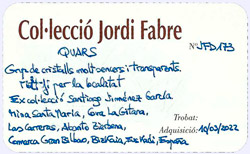 Col·lecció Jordi Fabre
QUARS
Nº JFD173
Grup de cristalls molt sencers i transparents.
Molt bo per la localitat
Ex col·lecció Santiago Jiménez García
Mina Santa María, Cova La Gitana,
Las Carreras, Abanto Zierbena,
Comarca Gran Bilbao, Bizkaia, Euskadi, España
Trobat:
Adquisició: 10/03/2022